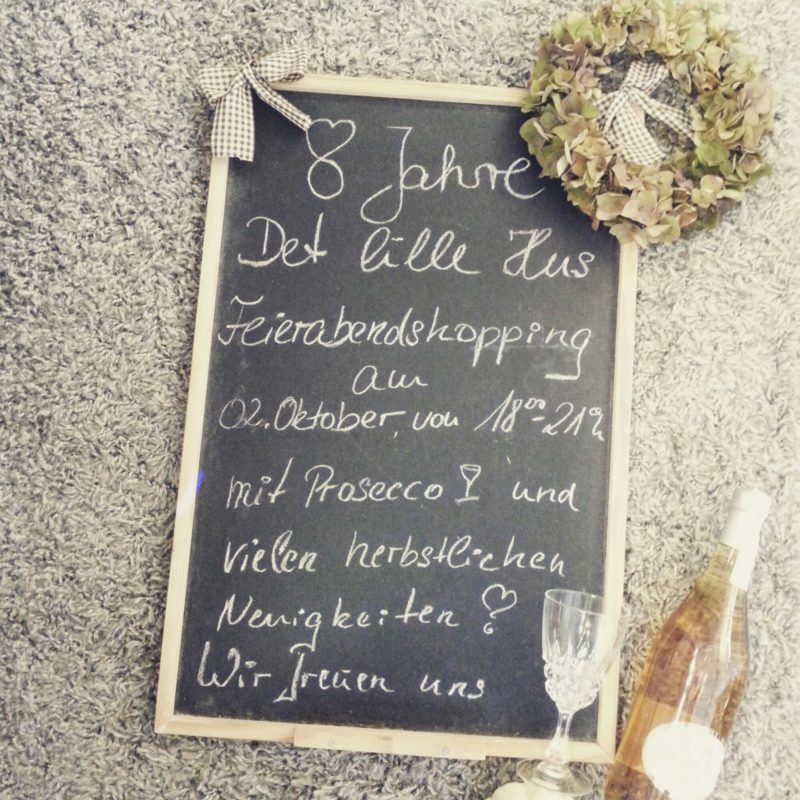 8 Jahre
Det lille Hus
Feierabendshopping
am
02. Oktober, von 18⁰⁰-21⁰⁰h
mit Prosecco und
vielen herbstlichen
Neuigkeiten
Wir freuen uns